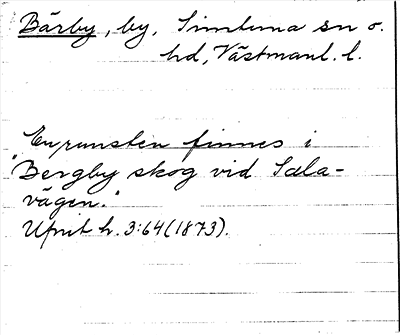 Bärby, by, Simtuna sn o.
hd, Västmanl. l.
"En runsten finnes i
Bergby skog vid Sala-
vägen."
Upnit h. 3:64(1873).